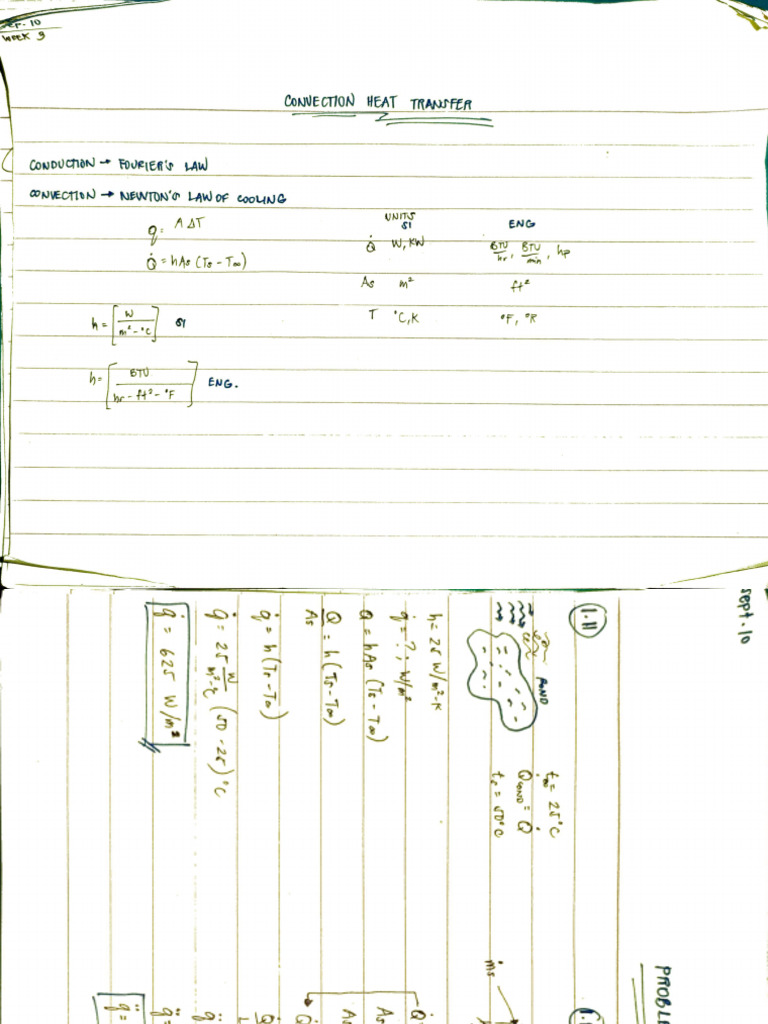 Week 3
CONVECTION HEAT TRANSFER
CONDUCTION → FOURIER'S LAW
CONVECTION → NEWTON'S LAW OF COOLING
q = A ΔT
Q̇ = hAs (Ts - T∞)
UNITS
SI ENG
Q̇ W, KW BTU/hr, BTU/min, hp
As m² ft²
T °C, K °F, °R
h = [W / m² - °C] SI
h = [BTU / hr - ft² - °F] ENG.
sept. 10
1.11
POND
t∞ = 25°C
Q̇COND = Q̇
ts = 50°C
h = 25 W/m²-K
q̇ = ? ; W/m²
Q = hAs (Ts - T∞)
Q/As = h (Ts - T∞)
q̇ = h (Ts - T∞)
q̇ = 25 W/m²-°C (50 - 25) °C
q̇ = 625 W/m²
PROBLE
ṁs
Q̇ =
As
As
Q̇
q̈ =
q̈ =